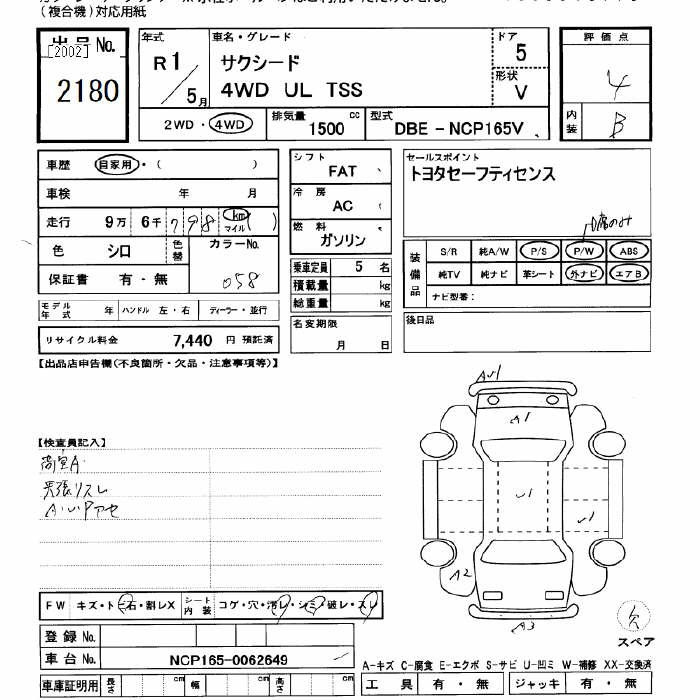 (複合機)対応用紙
出品No.
[2002]
2180
年式
R1/5月
車名・グレード
サクシード
4WD UL TSS
ドア
5
形状
V
評価点
4
内装
B
2WD・4WD
排気量
1500 cc
型式
DBE-NCP165V
車歴 自家用・( )
車検 年 月
走行 9万 6千 798 km マイル ( )
色 シロ 色替
カラーNo.
058
保証書 有・無
モデル年式 年 ハンドル 左・右 ディーラー・並行
リサイクル料金 7,440 円 預託済
シフト
FAT
冷房
AC
燃料
ガソリン
乗車定員 5 名
積載量 kg
総重量 kg
名変期限
月 日
セールスポイント
トヨタセーフティセンス
装備品
S/R 純A/W P/S P/W ABS
純TV 純ナビ 革シート 外ナビ エアB
ナビ型番:
後日品
【出品店申告欄(不良箇所・欠品・注意事項等)】
【検査員記入】
荷室A
天張リスレ
A・U・Pアセ
AU1
A1
U1
U1
A2
A3
欠
スペア
FW キズ・トビ石・割レX
シート内装 コゲ・穴・汚レ・シミ・破レ・スレ
登録No.
車台No. NCP165-0062649
車庫証明用 長さ cm 幅 cm 高さ cm
A-キズ C-腐食 E-エクボ S-サビ U-凹ミ W-補修 XX-交換済
工具 有・無 ジャッキ 有・無